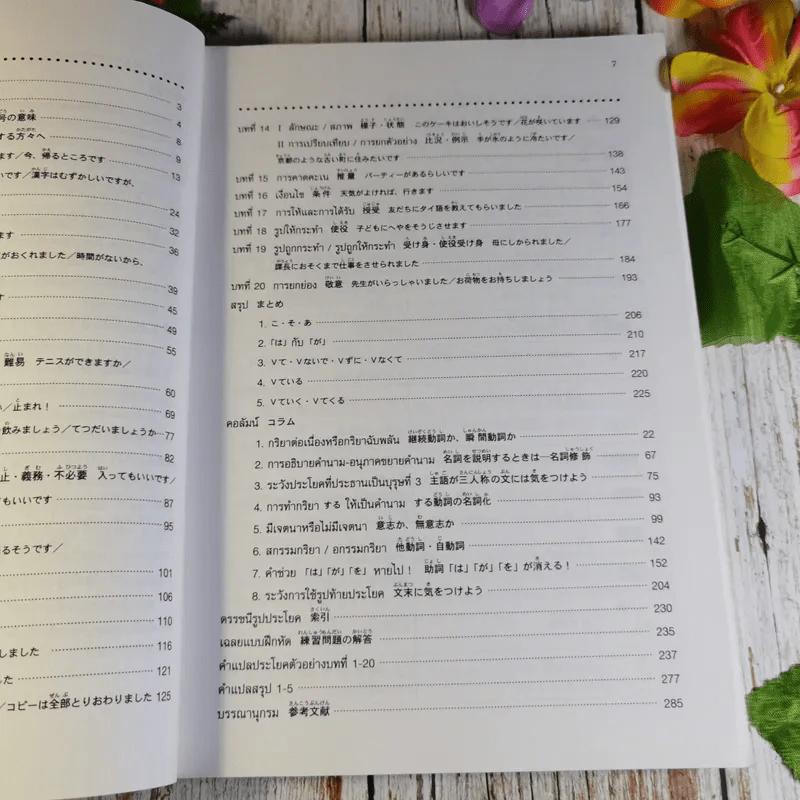 3
号の意味 4
する方々へ 8
ます/今、帰るところです 9
いです/漢字はむずかしいですが、 13
24
32
ます 36
がおくれました/時間がないから、
39
す 45
49
55
難易 テニスができますか/
60
い/止まれ! 69
飲みましょう/てつだいましょうか 77
82
止・義務・不必要 入ってもいいです/
87
もいいです 95
るそうです/
101
106
110
しました 116
した 121
/コピーは全部とりおわりました 125
7
บทที่ 14 I ลักษณะ / สภาพ 様子・状態 このケーキはおいしそうです/花が咲いています 129
II การเปรียบเทียบ / การยกตัวอย่าง 比況・例示 手が氷のように冷たいです/
京都のような古い町に住みたいです 138
บทที่ 15 การคาดคะเน 推量 パーティーがあるらしいです 143
บทที่ 16 เงื่อนไข 条件 天気がよければ、行きます 154
บทที่ 17 การให้และการได้รับ 授受 友だちにタイ語を教えてもらいました 166
บทที่ 18 รูปให้กระทำ 使役 子どもにへやをそうじさせます 177
บทที่ 19 รูปถูกกระทำ / รูปถูกให้กระทำ 受け身・使役受け身 母にしかられました/
課長におそくまで仕事をさせられました 184
บทที่ 20 การยกย่อง 敬意 先生がいらっしゃいました/お荷物をお持ちしましょう 193
สรุป まとめ
1. こ・そ・あ 206
2.「は」กับ「が」 210
3. Vて・Vないで・Vずに・Vなくて 217
4. Vている 220
5. Vていく・Vてくる 225
คอลัมน์ コラム
1. กริยาต่อเนื่องหรือกริยาฉับพลัน 継続動詞か、瞬間動詞か 22
2. การอธิบายคำนาม-อนุภาคขยายคำนาม 名詞を説明するときは—名詞修飾 67
3. ระวังประโยคที่ประธานเป็นบุรุษที่ 3 主語が三人称の文には気をつけよう 75
4. การทำกริยา する ให้เป็นคำนาม する動詞の名詞化 93
5. มีเจตนาหรือไม่มีเจตนา 意志か、無意志か 99
6. สกรรมกริยา / อกรรมกริยา 他動詞・自動詞 142
7. คำช่วย 「は」「が」「を」 หายไป! 助詞「は」「が」「を」が消える! 152
8. ระวังการใช้รูปท้ายประโยค 文末に気をつけよう 204
ดรรชนีรูปประโยค 索引 230
เฉลยแบบฝึกหัด 練習問題の解答 235
คำแปลประโยคตัวอย่างบทที่ 1-20 237
คำแปลสรุป 1-5 277
บรรณานุกรม 参考文献 285